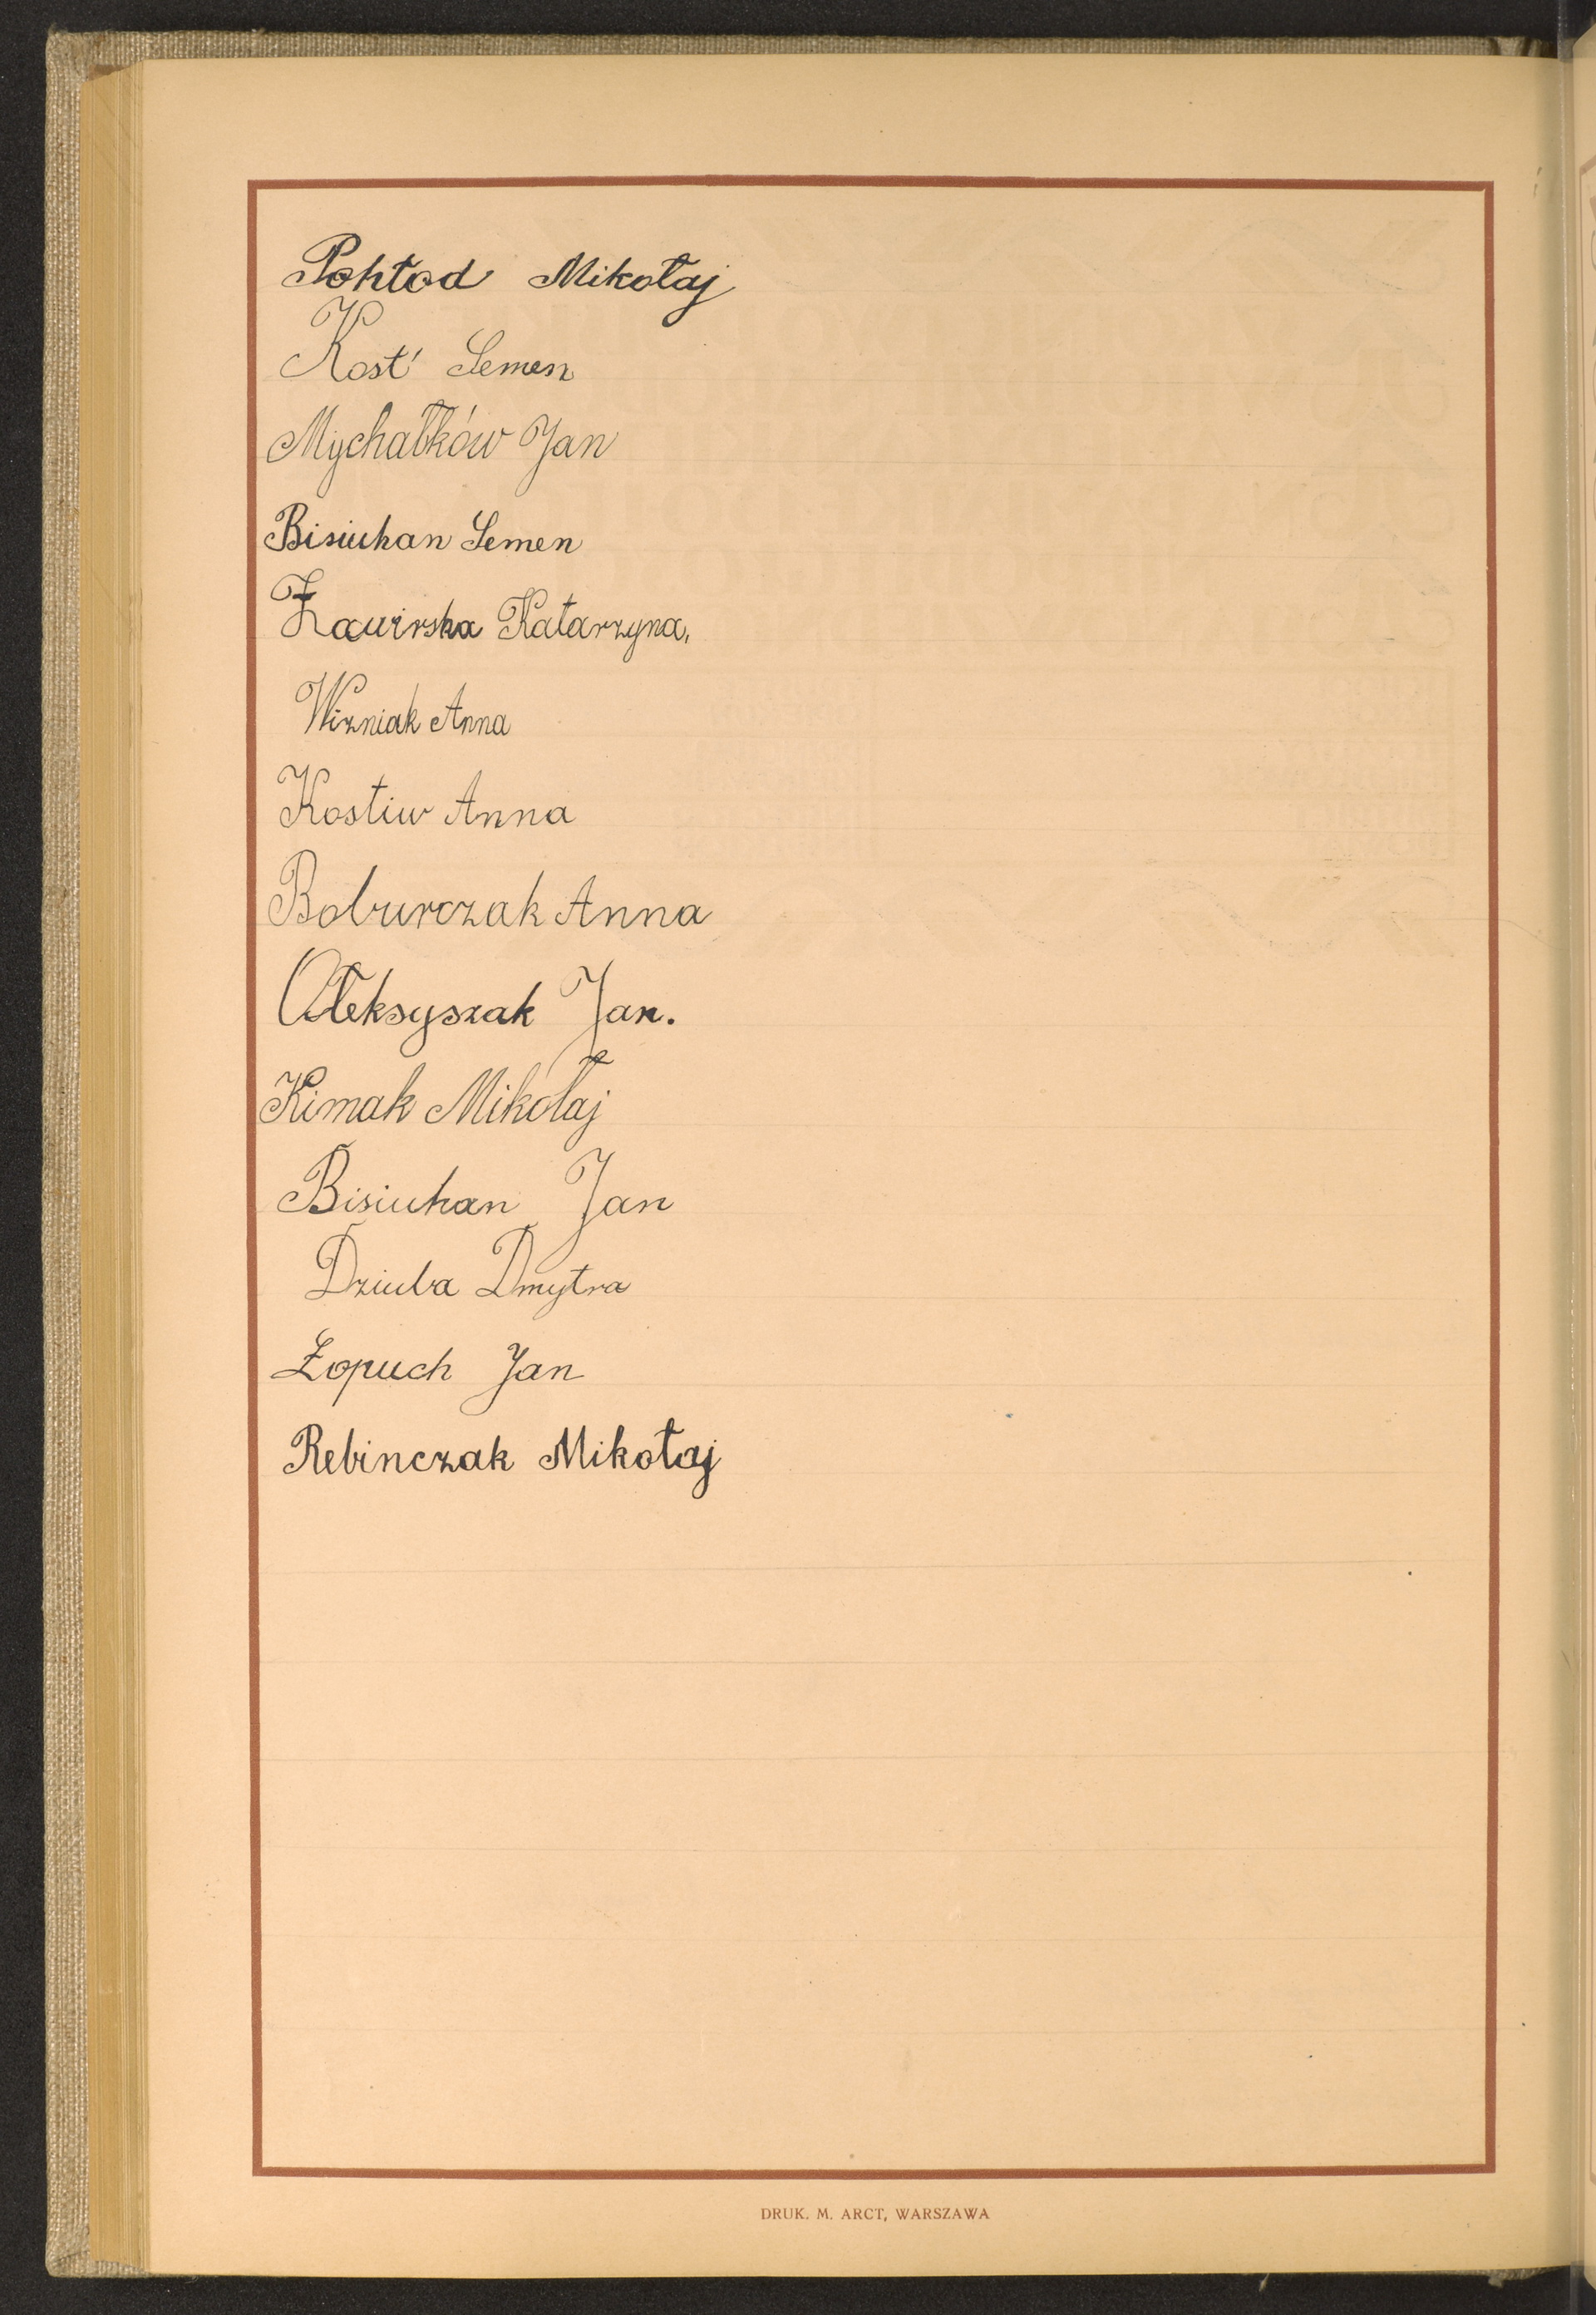 Pohłod Mikołaj
Kost' Semen
Mychałków Jan
Bisiuhan Semen
Zawirska Katarzyna.
Wizniak Anna
Kostiw Anna
Boburczak Anna
Ołeksyszak Jan.
Kimak Mikołaj
Bisiuhan Jan
Dziuba Dmytra
Łopuch Jan
Rebinczak Mikołaj
DRUK. M. ARCT, WARSZAWA